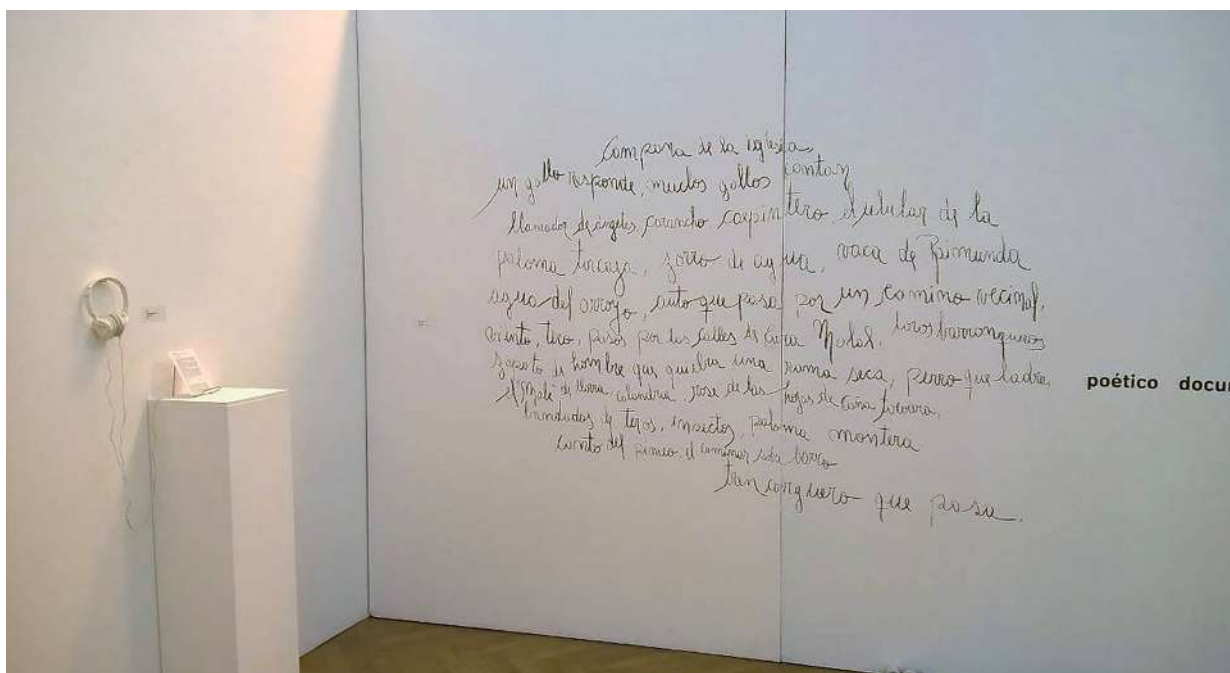 Campana de la iglesia,
un gallo responde, muchos gallos cantan
llamador de ángeles, carancho carpintero, el ulular de la
paloma torcaza, zorro de agua, vaca de Raimunda
agua del arroyo, auto que pasa por un camino vecinal,
viento, tero, pasos por las calles de Cura Malal, loros barranqueros
zapato de hombre que quiebra una rama seca, perro que ladra,
de lluvia, calandria, rose de las hojas de caña tacuara,
bandadas de teros, insectos, paloma montera
el caminar barro
tren carguero que pasa.
poético docu